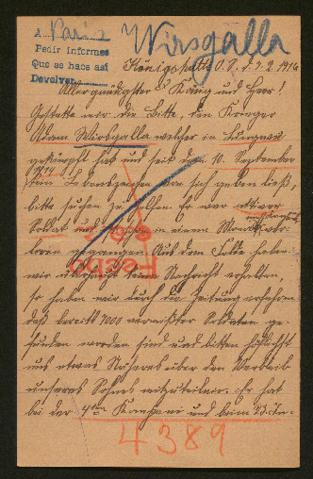 A Paris
Pedir informes
Que se haga así
Devolver
Wirsgalla
Königshütte O. S. d. 7.2.1916
Allergnädigster König und Herr!
Gestatte mir die Bitte, den Krieger
Adam Wirsgalla welcher in
gekämpft hat und seit dem 10. September
1914 kein Lebenszeichen von sich geben ließ,
bitte suchen zu helfen. Er war aktiver
Soldat und in einem
gegangen. Aus dem Felde haben
wir keine Nachricht erhalten
so haben wir durch die Zeitung erfahren
daß bereits 7000 vermißter Soldaten ge-
funden worden sind und bitten höflichst
uns etwas Näheres über den Verbleib
unseres Sohnes mitzuteilen. Er hat
bei der 4ten Kompanie und beim
Fecho
4389